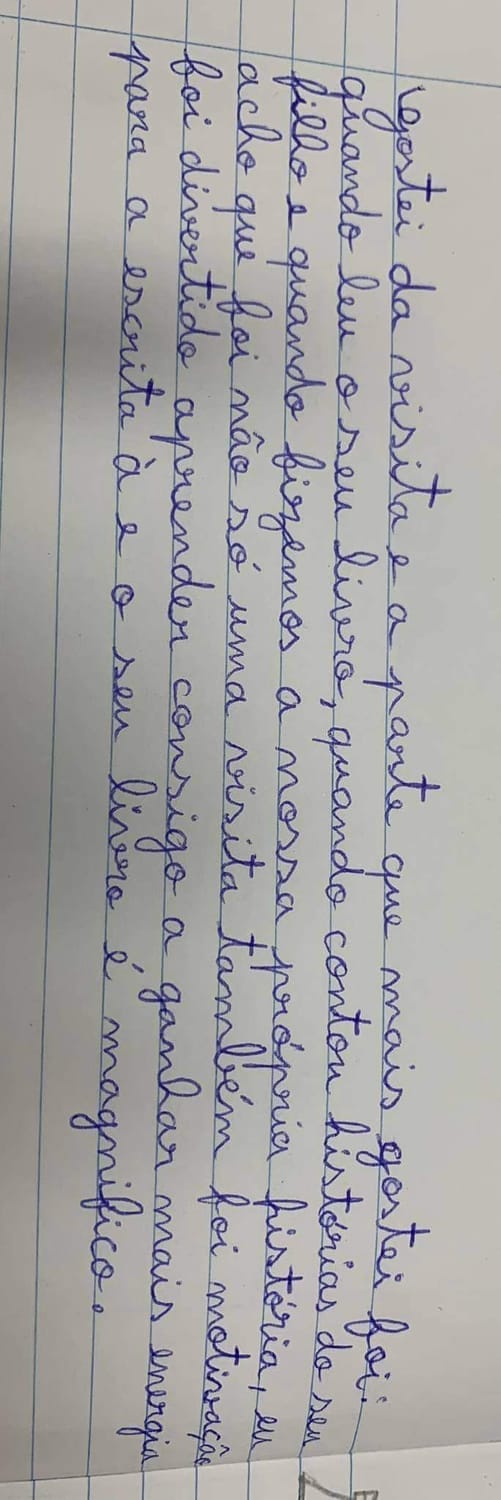 gostei da visita e a parte que mais gostei foi:
quando leu o seu livro, quando contou histórias do seu
filho e quando fizemos a nossa própria história, eu
acho que foi não só uma visita também foi motivação
foi divertido aprender consigo a ganhar mais energia
para a escrita à e o seu livro é magnifico.